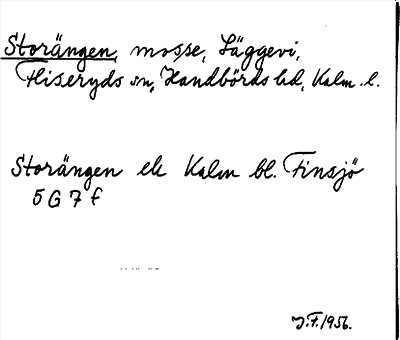 Storängen, mosse, Läggevi,
Fliseryds sn, Handbörds hd, Kalm. l.
Storängen ek Kalm bl. Finsjö
5 G 7 f
J.F. 1956.